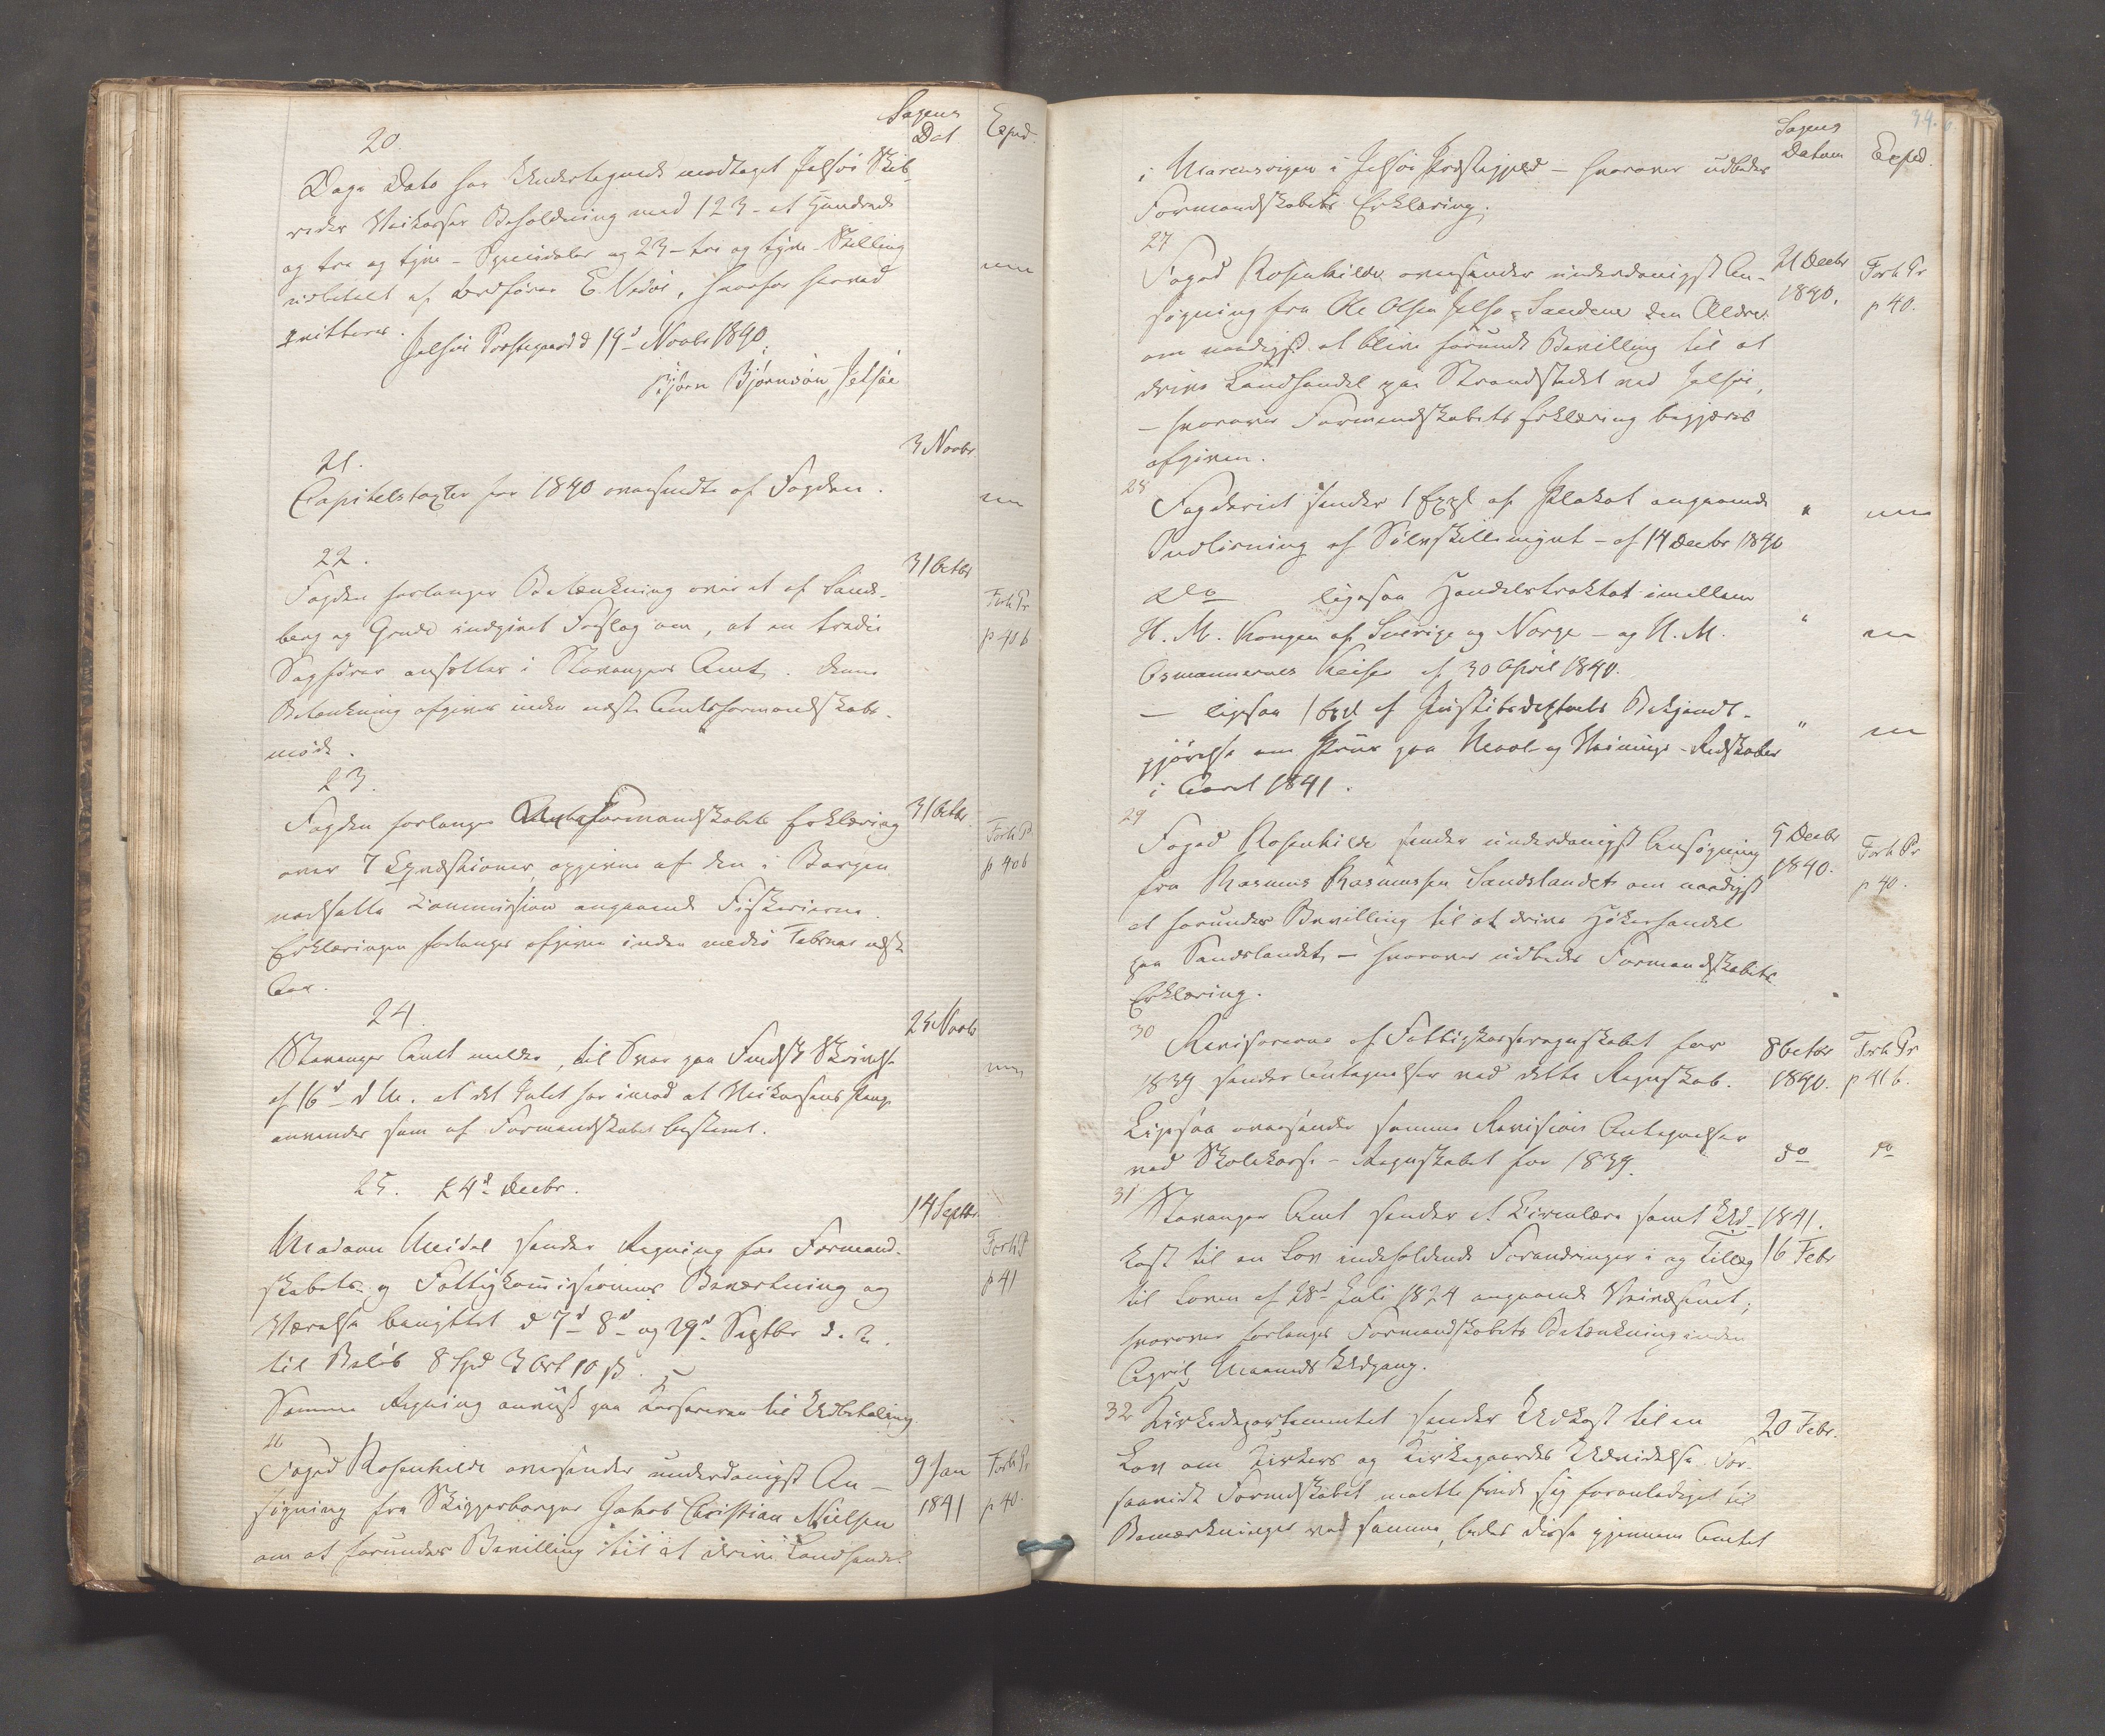 Sagens
Dat
Exped.
20.
Dags Dato har Undertegnede modtaget Jelsøe Skib-
redes Veikasses Beholdning med 123 - et Hundrede
og tre og tyve - Speciedaler og 23 - tre og tyve - Skilling
udbetalt af Ordfører E. Vadøe, hvorfor herved
qvitteres.
Jelsøe Præstegaard d 19d Novbr 1840.
Bjørn Bjørnsøn Jelsøe
21.
3 Novbr
Capitelstaxter for 1840 oversendte af Fogden.
22.
31 Octbr
Fogden forlanger Betænkning over et af Sand-
berg og Grude indgivet Forslag om, at en tredie
Sagfører ansættes i Stavangers Amt. Denne
Betænkning afgives inden næste Amtsformandskabs-
møde.
Forh Pr
p 40 b
23.
Fogden forlanger Formandskabets Erklæring
over 7 Qvæstioner, opgivne af den i Bergen
nedsatte Commission angaaende Fiskerierne.
Erklæringen forlanges afgiven inden medio Februar næste
Aar.
31 Octbr.
Forh Pr
p 40 b
24.
Stavanger Amt melder, til Svar paa Skrivelse
af 16d d M. at det Intet har imod at Veikassens Penge
anvendes som af Formandskabet bestemt.
25 Novbr
25. 4d Decbr.
14 Septbr.
Madame Meidel sender Regning for Formand-
skabets og Fattigkommissionens Beværtning og
Værelse benyttet d 7d 8d og 29d Septbr d. A.
til Beløb 8 Spd 3 Ort 10 ß.
Samme Regning anviist paa Kassereren til Udbetaling.
Forh P
p 41
26
Foged Rosenkilde oversender underdanigst An-
søgning fra Skipperborger Jakob Christian Nielsen
om at forundes Bevilling til at drive Landhandel
9 Jan
1841
Forh Pr
p 40.
34.
Sagens
Datum
Exped.
i Marensvigen i Jelsøe Præstegjeld - hvorover udbedes
Formandskabets Erklæring.
27
Foged Rosenkilde oversender underdanigst An-
søgning fra Ole Olsen Jelse-Sandene den Ældre
om naadigst at blive forundt Bevilling til at
drive Landhandel paa Strandstedet ved Jelsøe,
- hvorover Formandskabets Erklæring begjæres
afgiven.
21 Decbr
1840.
Forh Pr
p 40.
28
Fogderiet sender 1 Expl af Plakat angaaende
Indløsning af Sølvskillemynt - af 14 Decbr 1840
Do ligesaa Handelstraktat imellem
H. M. Kongen af Sverige og Norge - og H. M.
Osmannernes Keiser af 30 April 1840.
- ligesaa 1 Expl af Justitsdeptmts Bekjendt-
gjørelse om Priis paa Maal- og Veinings-Redskaber
i Aaret 1841.
29
Foged Rosenkilde sender underdanigst Ansøgning
fra Rasmus Rasmussen Sandslandet om naadigst
at forundes Bevilling til at drive Høkerhandel
paa Sandslandet - hvorover udbedes Formandskabets
Erklæring.
5 Decbr
1840.
Forh Pr
p 40.
30
Revisorerne af Fattigkasseregnskabet for
1839 sender Antegnelser ved dette Regnskab.
8 Octbr
1840.
Forh Pr
p 41 b.
Ligesaa oversender samme Revision Antegnelser
ved Skolekasse-Regnskabet for 1839.
do
do
31
Stavanger Amt sender et Circulære samt Ud-
kast til en Lov indeholdende Forandringer i og Tillæg
til Loven af 28d Juli 1824 angaaende Veivæsenet,
hvorover forlanges Formandskabets Betænkning inden
April Maaneds Udgang.
1841.
16 Febr
32
Kirkedepartementet sender Udkast til en
Lov om Kirkers og Kirkegaardes Udvidelse. For-
saavidt Formdskabet maatte finde sig foranlediget til
Bemærkninger ved samme, bedes disse gjennem Amtet
20 Febr.